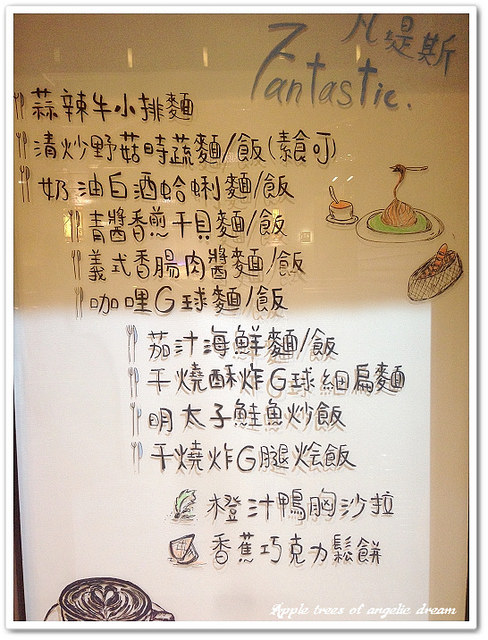 凡緹斯
Fantastic.
蒜辣牛小排麵
清炒野菇時蔬麵/飯(素食可)
奶油白酒蛤蜊麵/飯
青醬香煎干貝麵/飯
義式香腸肉醬麵/飯
咖哩G球麵/飯
茄汁海鮮麵/飯
干燒酥炸G球細扁麵
明太子鮭魚炒飯
干燒炸G腿烩飯
橙汁鴨胸沙拉
香蕉巧克力鬆餅
Apple trees of angelic dream